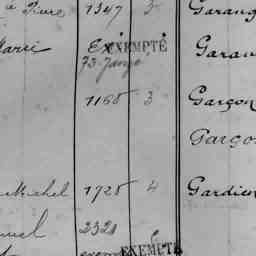 Pierre 1347 3 Garang
Marci Ex EXEMPTÉ Garau
73
1168 3 Garçon
Garço
Michel 1728 4 Gardien
uel 2321
EXEMPTÉ